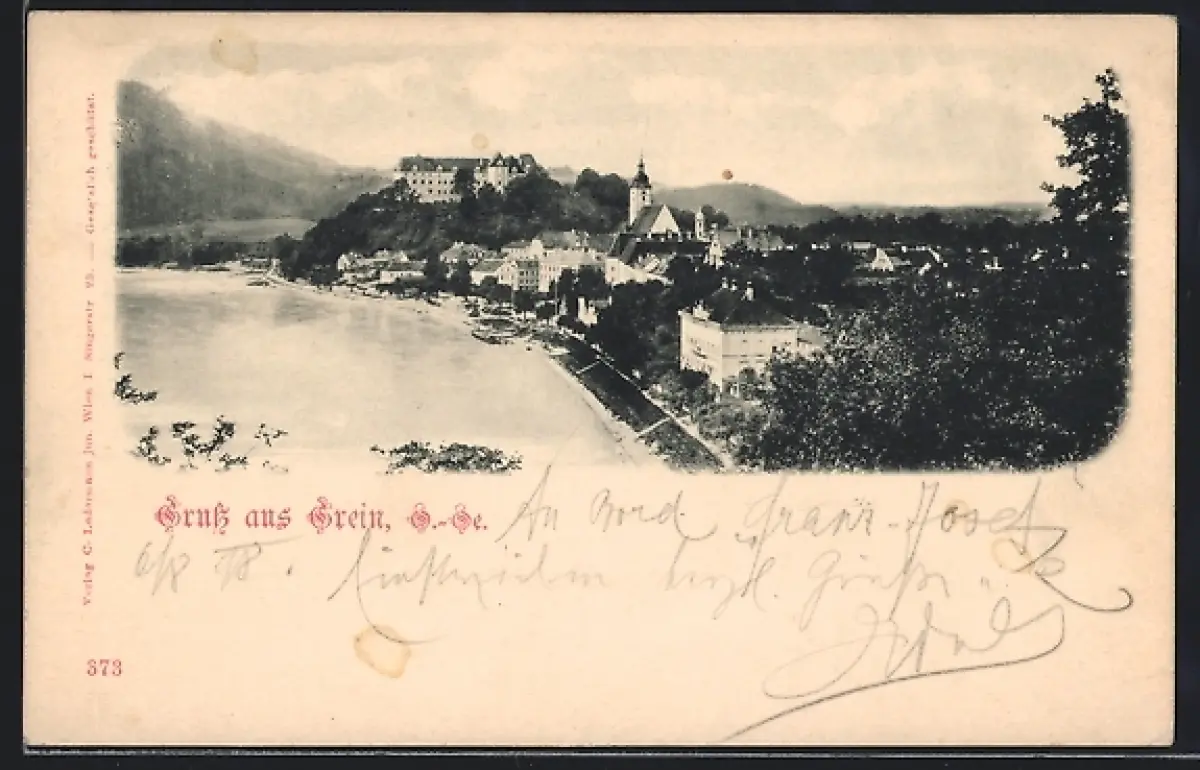 Verlag C. Ledermann jun. Wien I Singerstr 25. — Gesetzlich geschützt.
Gruß aus Grein, O.-Oe.
An Bord Franz-Josef
6/8 98.
herzl. Grüße
373